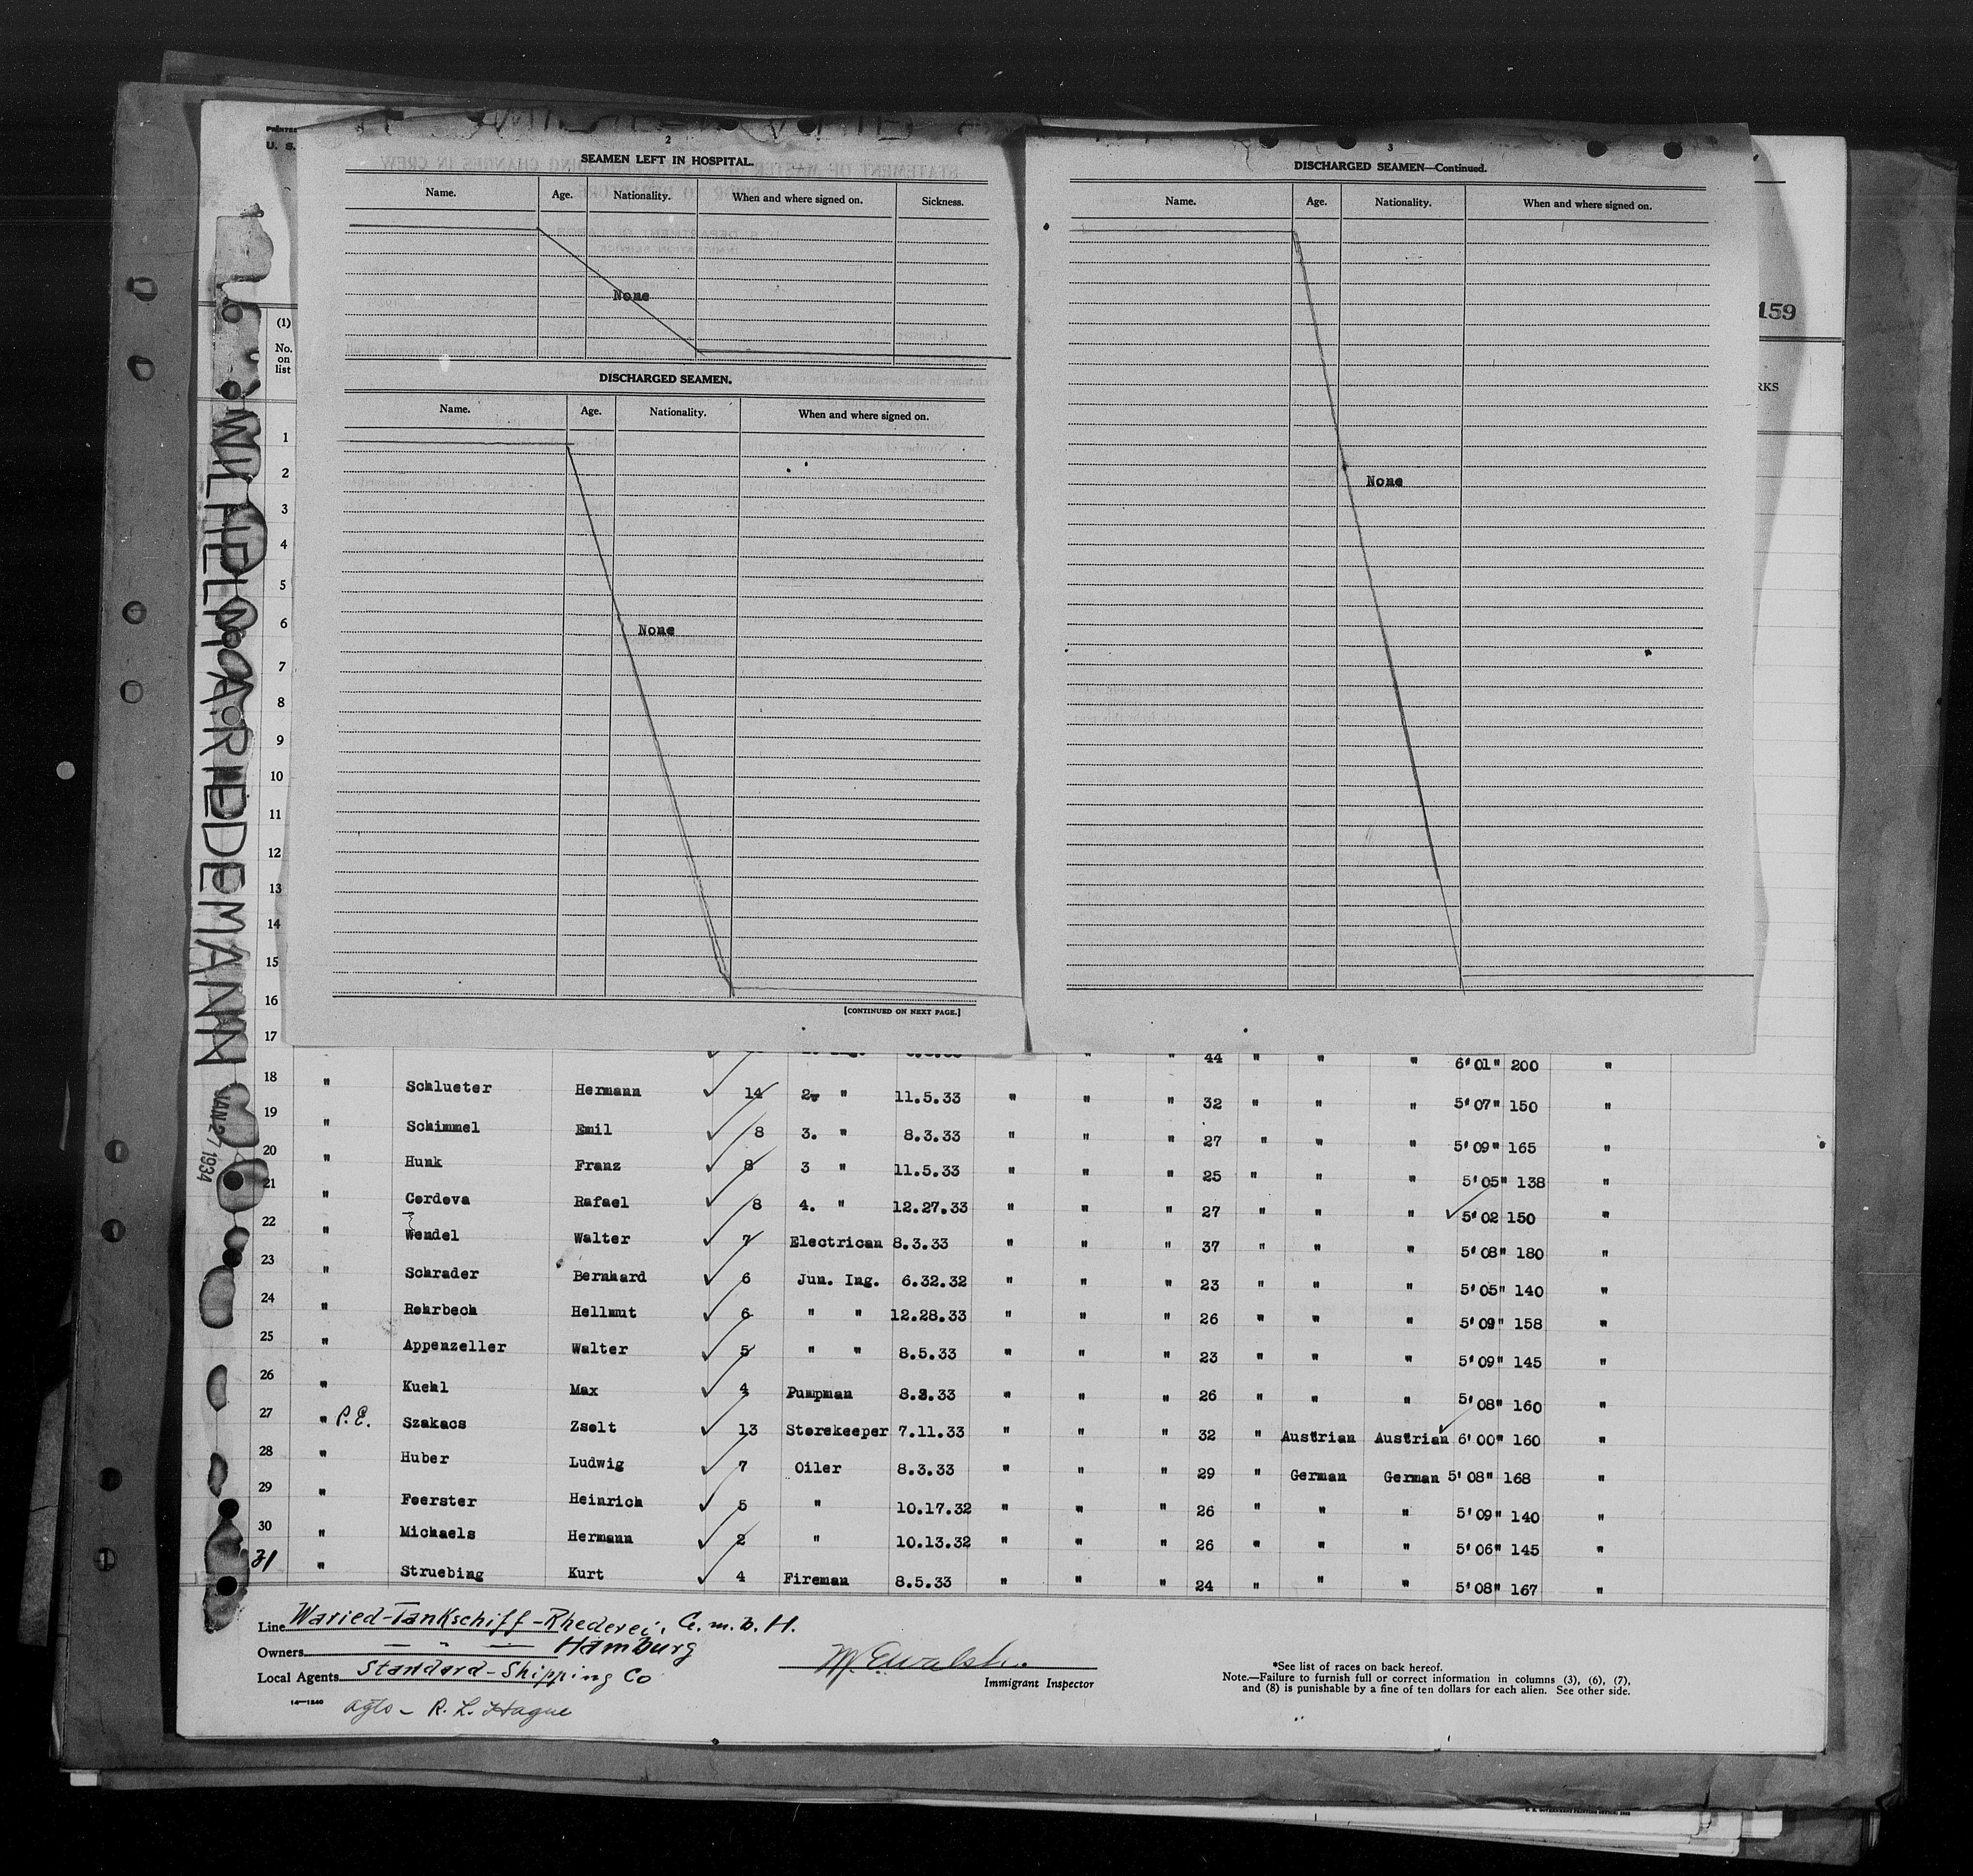 PRINTED
U. S.
2
SEAMEN LEFT IN HOSPITAL.
Name. Age. Nationality. When and where signed on. Sickness.
None
DISCHARGED SEAMEN.
Name. Age. Nationality. When and where signed on.
None
[CONTINUED ON NEXT PAGE.]
3
DISCHARGED SEAMEN—Continued.
Name. Age. Nationality. When and where signed on.
None
159
RKS
WILHELM A. RIEDEMANN
JAN 27 1934
(1)
No.
on
list
1
2
3
4
5
6
7
8
9
10
11
12
13
14
15
16
17
44 " " " 6'01" 200 "
18 " Schlueter Hermann 14 2. " 11.5.33 " " " 32 " " " 5'07" 150 "
19 " Schimmel Emil 8 3. " 8.3.33 " " " 27 " " " 5'09" 165 "
20 " Hunk Franz 8 3 " 11.5.33 " " " 25 " " " 5'05" 138 "
21 " Cordova Rafael 8 4. " 12.27.33 " " " 27 " " " 5'02 150 "
22 " Wendel Walter 7 Electrican 8.3.33 " " " 37 " " " 5'08" 180 "
23 " Schrader Bernhard 6 Jun. Ing. 6.32.32 " " " 23 " " " 5'05" 140 "
24 " Rohrbeck Hellmut 6 " " 12.28.33 " " " 26 " " " 5'09" 158 "
25 " Appenzeller Walter 5 " " 8.5.33 " " " 23 " " " 5'09" 145 "
26 " Kuehl Max 4 Pumpman 8.3.33 " " " 26 " " " 5'08" 160 "
27 " P.E. Szakacs Zsolt 13 Storekeeper 7.11.33 " " " 32 " Austrian Austrian 6'00" 160 "
28 " Huber Ludwig 7 Oiler 8.3.33 " " " 29 " German German 5'08" 168 "
29 " Foerster Heinrich 5 " 10.17.32 " " " 26 " " " 5'09" 140 "
30 " Michaels Hermann 2 " 10.13.32 " " " 26 " " " 5'06" 145 "
31 " Struebing Kurt 4 Fireman 8.5.33 " " " 24 " " " 5'08" 167 "
Line Waried-Tankschiff-Rhederei, G.m.b.H.
Owners — " — Hamburg
Local Agents Standard-Shipping Co
14—1240
Agts – R. L. Hague
Immigrant Inspector
*See list of races on back hereof.
Note.—Failure to furnish full or correct information in columns (3), (6), (7),
and (8) is punishable by a fine of ten dollars for each alien. See other side.